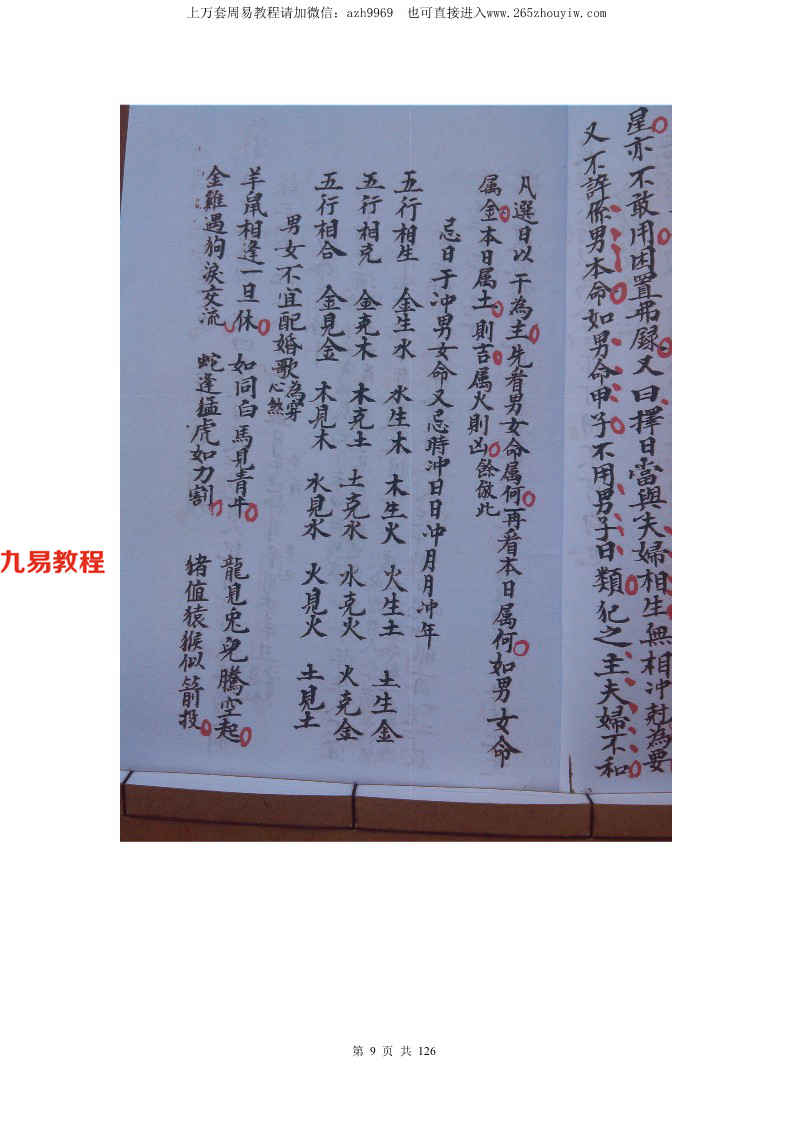 上万套周易教程请加微信：azh9969　也可直接进入www.265zhouyiw.com
星亦不敢用困置弗録又曰擇日當與夫婦相生無相沖尅為要
又不許傷男本命如男命甲子不用男子日類犯之主夫婦不和
凡選日以干為主先看男女命属何再看本日属何如男女命
属金本日属土則吉属火則凶餘倣此
忌日于冲男女命又忌時沖日日沖月月沖年
五行相生　金生水　水生木　木生火　火生土　土生金
五行相克　金克木　木克土　土克水　水克火　火克金
五行相合　金見金　木見木　水見水　火見火　土見土
男女不宜配婚歌為穿心煞
羊鼠相逢一旦休　如同白馬見青牛　龍見兎兒騰空起
金雞遇狗淚交流　蛇逢猛虎如刀割　猪值猿猴似箭投
九易教程
第 9 页 共 126